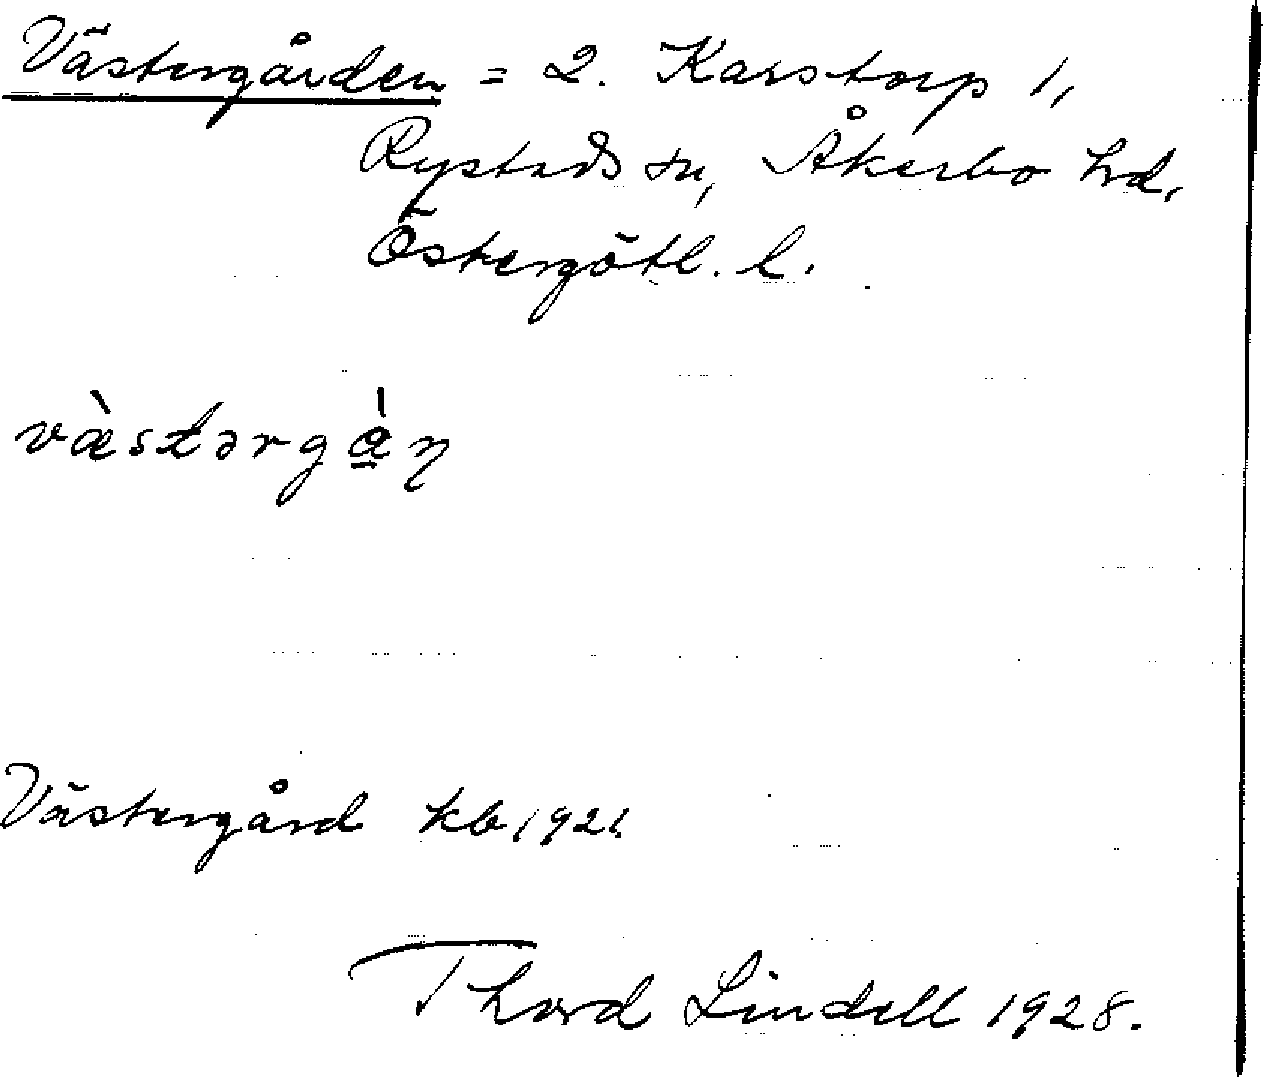 Västergården = 2. Karstorp 1,
Rystads sn, Åkerbo hd,
Östergötl. l.
væ̀stərgà̱ɳ
Västergård kb 1921.
Thord Lindell 1928.